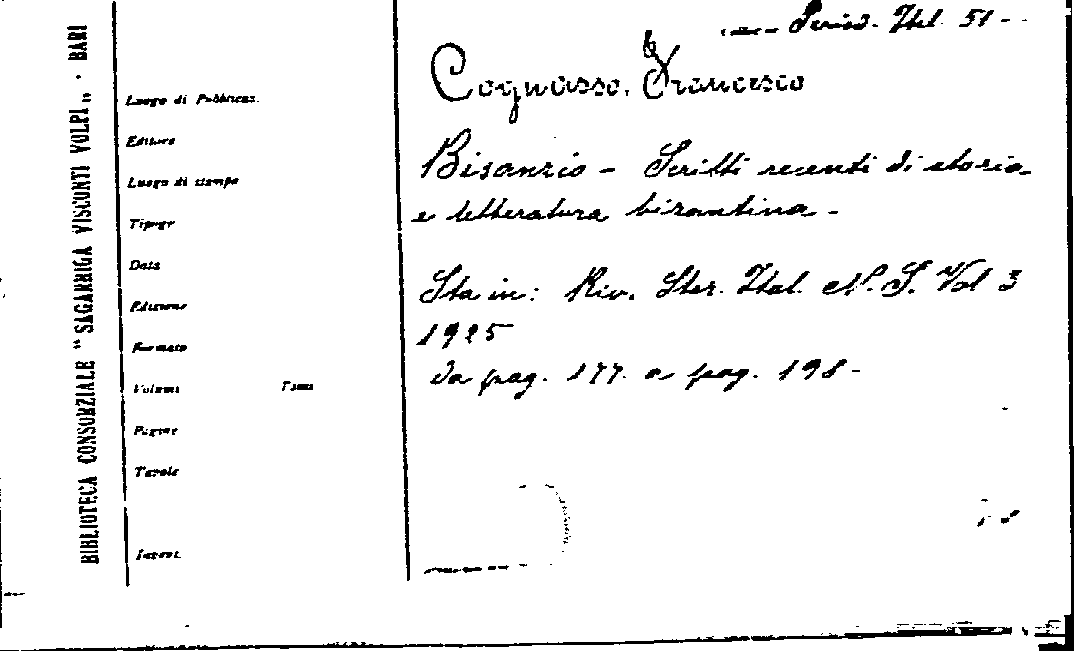 Period. Ital. 51
Cognasso, Francesco
Bisanzio - Scritti recenti di storia
e letteratura bizantina -
Sta in: Riv. Stor. Ital. N. S. Vol 3
1925
da pag. 177 a pag. 198-
BIBLIOTECA CONSORZIALE "SAGARRIGA VISCONTI VOLPI" - BARI
Luogo di Pubblicaz.
Editore
Luogo di stampa
Tipogr
Data
Edizione
Formato
Volumi Tomi
Pagine
Tavole
Intest.